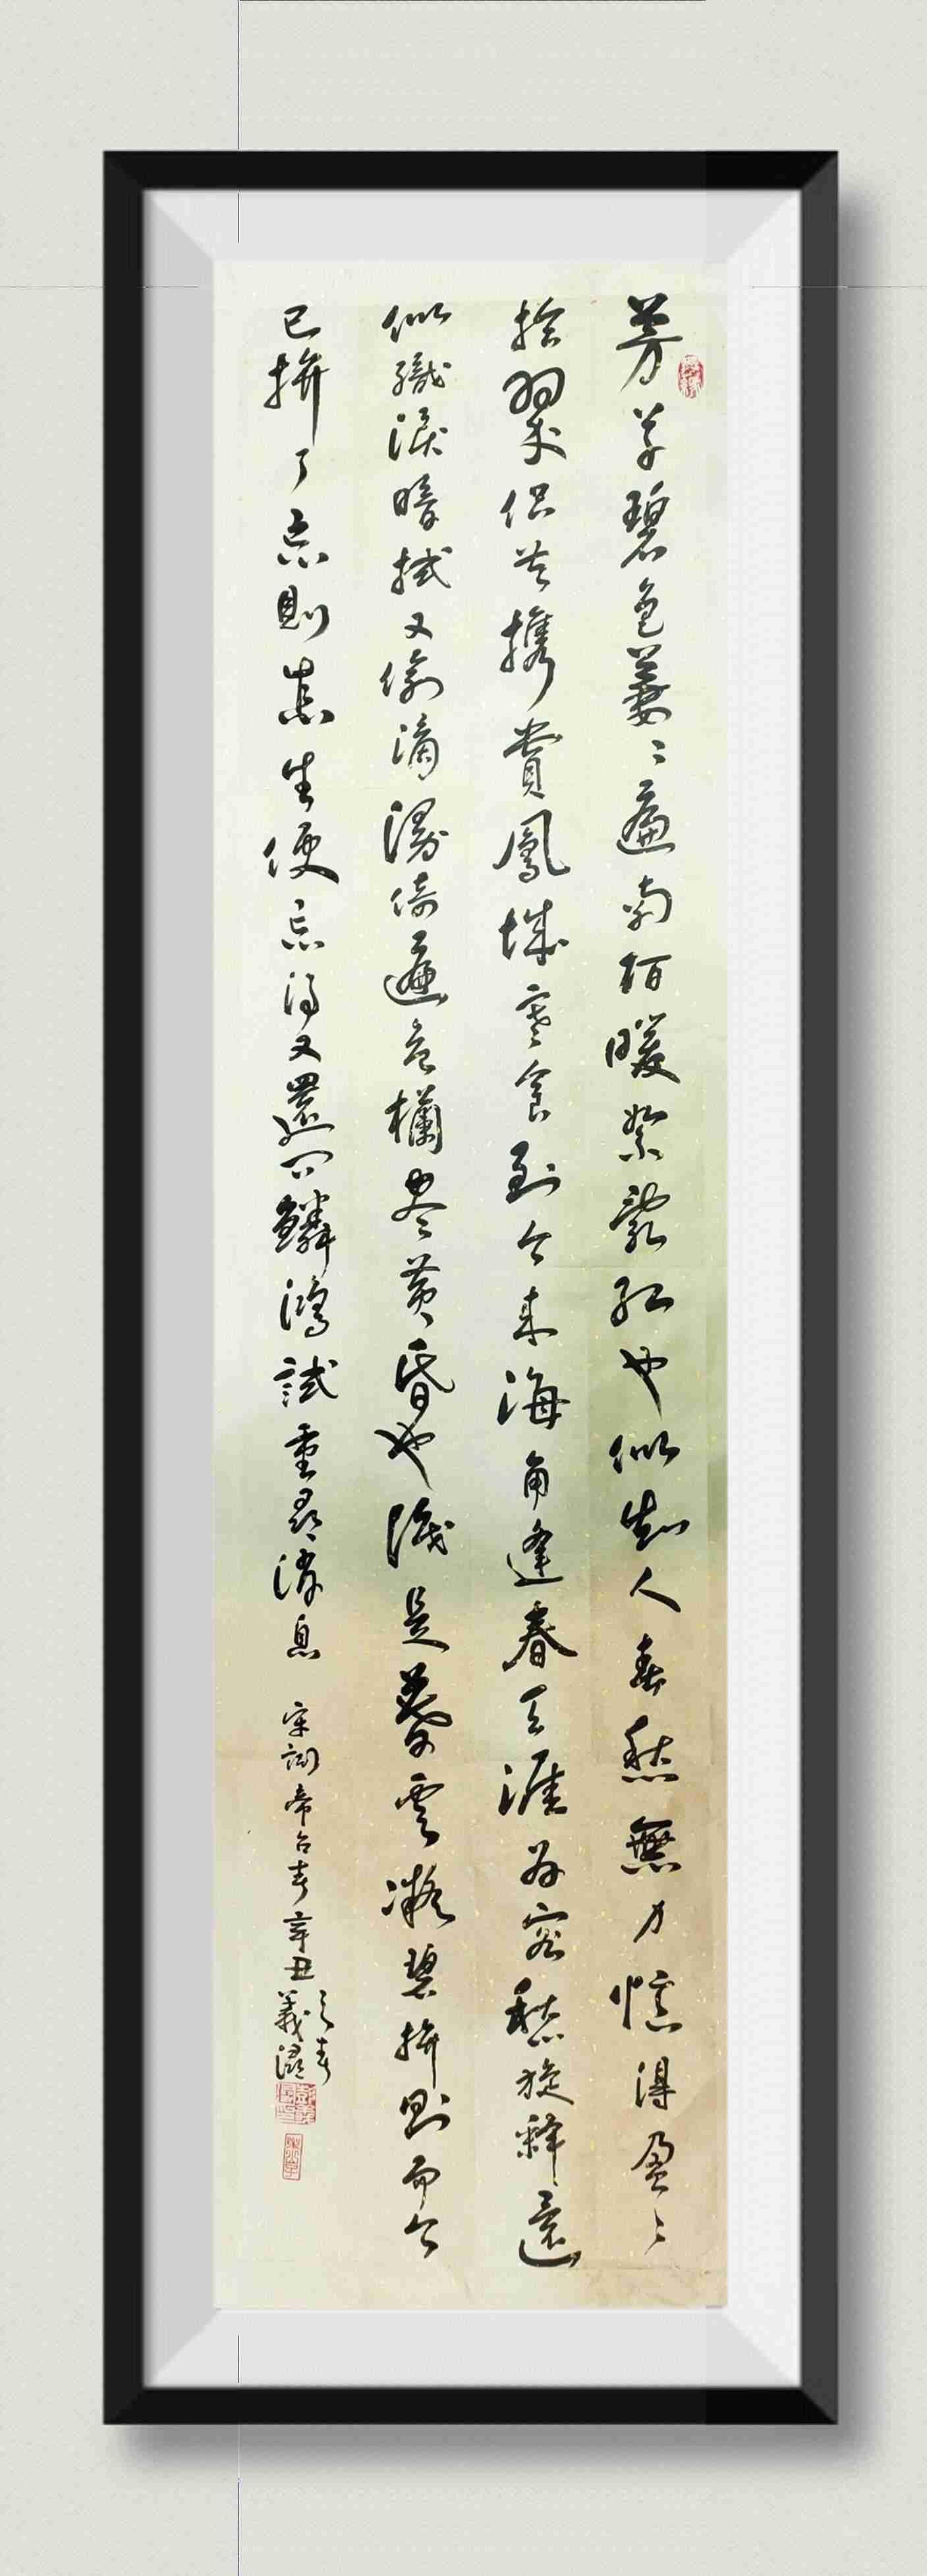 芳草碧色萋〻遍南陌暖絮亂紅也似知人春愁無力憶得盈〻
拾翠侣共携賞鳳城寒食到今來海角逢春天涯為客愁旋釋還
似織淚暗拭又偷滴漫倚遍危欄尽黄昏也祇是暮雲凝碧拚則而今
已拚了忘則怎生便忘得又還問鱗鴻試重尋消息 宋詞帝台春辛丑
之春
義